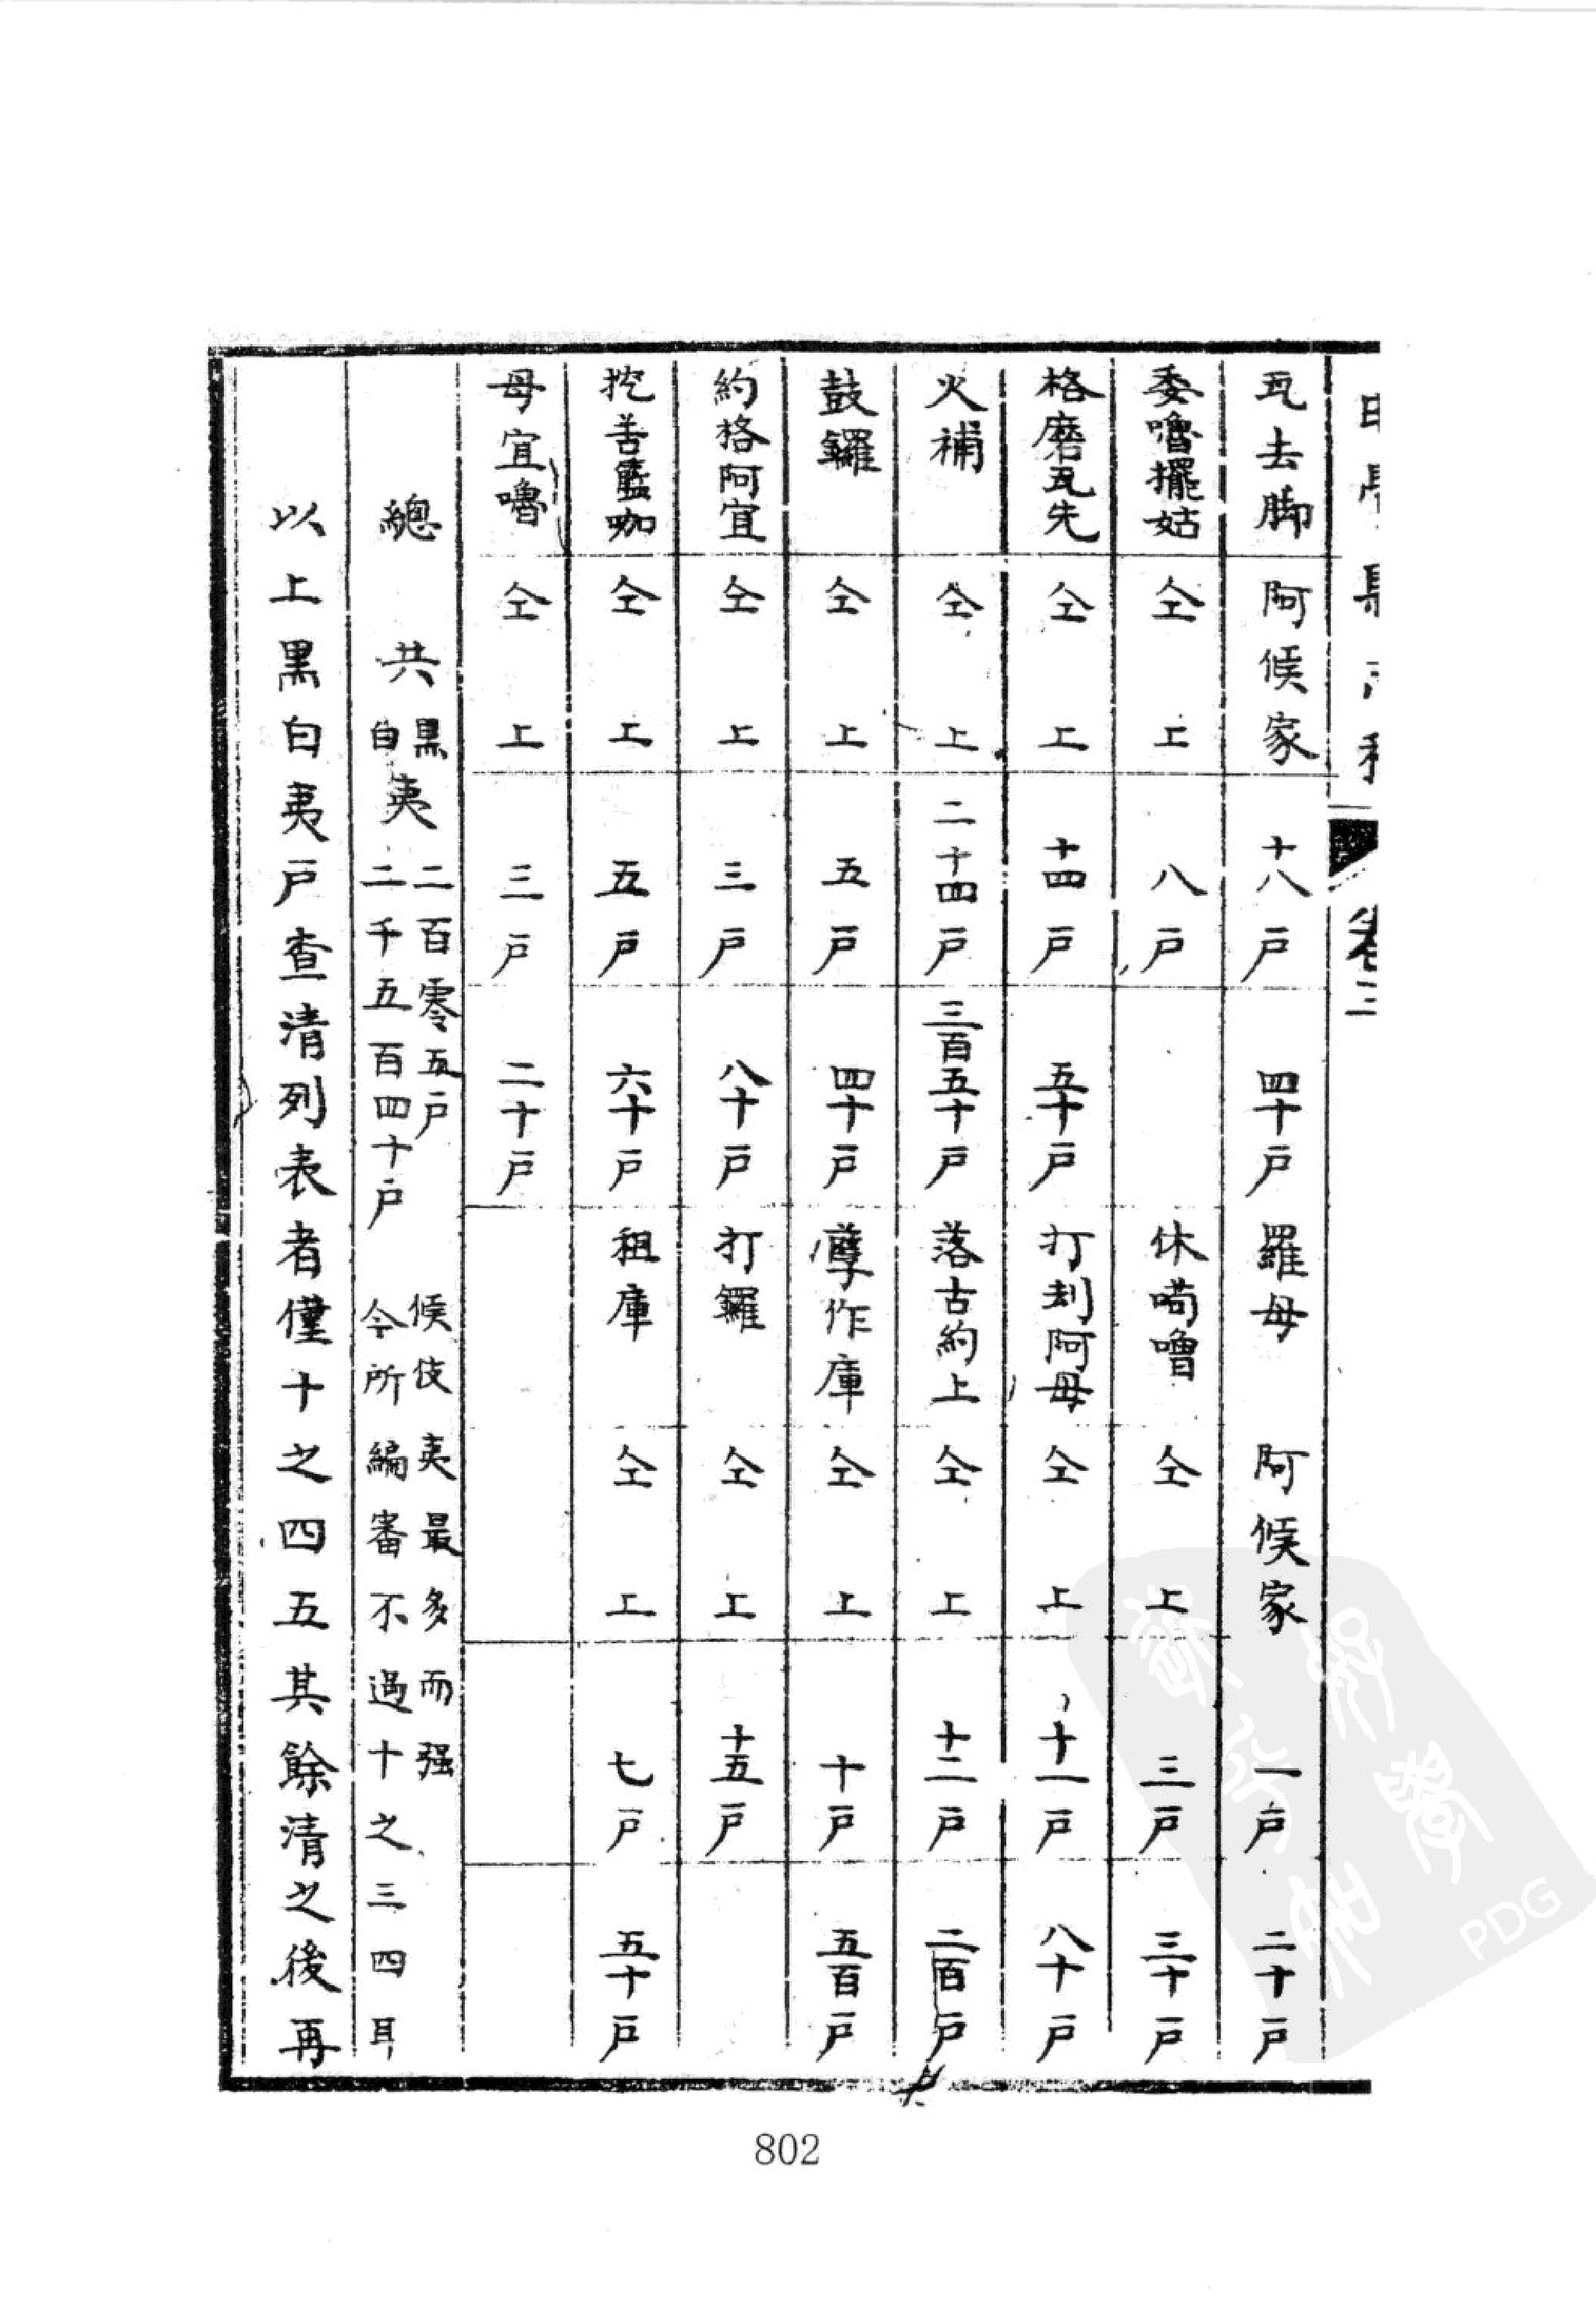 卷三
瓦去脚 阿候家 十八戶 四十戶 羅母 阿候家 一戶 二十戶
委嚕擺姑 仝上 八戶 休喃嚕 仝上 三戶 三十戶
格磨瓦先 仝上 十四戶 五十戶 打刦阿母 仝上 十一戶 八十戶
火補 仝上 二十四戶 三百五十戶 落古約上 仝上 十二戶 二百戶
鼓鑼 仝上 五戶 四十戶 孽作庫 仝上 十戶 五百戶
約格阿宜 仝上 三戶 八十戶 打鑼 仝上 十五戶
挖苦藍咖 仝上 五戶 六十戶 租庫 仝上 七戶 五十戶
母宜嚕 仝上 三戶 二十戶
總共黑白夷 二百零五戶 二千五百四十戶 候伎夷最多而强 今所編審不過十之三四耳
以上黑白夷戶查清列表者僅十之四五其餘清之後再
802
PDG